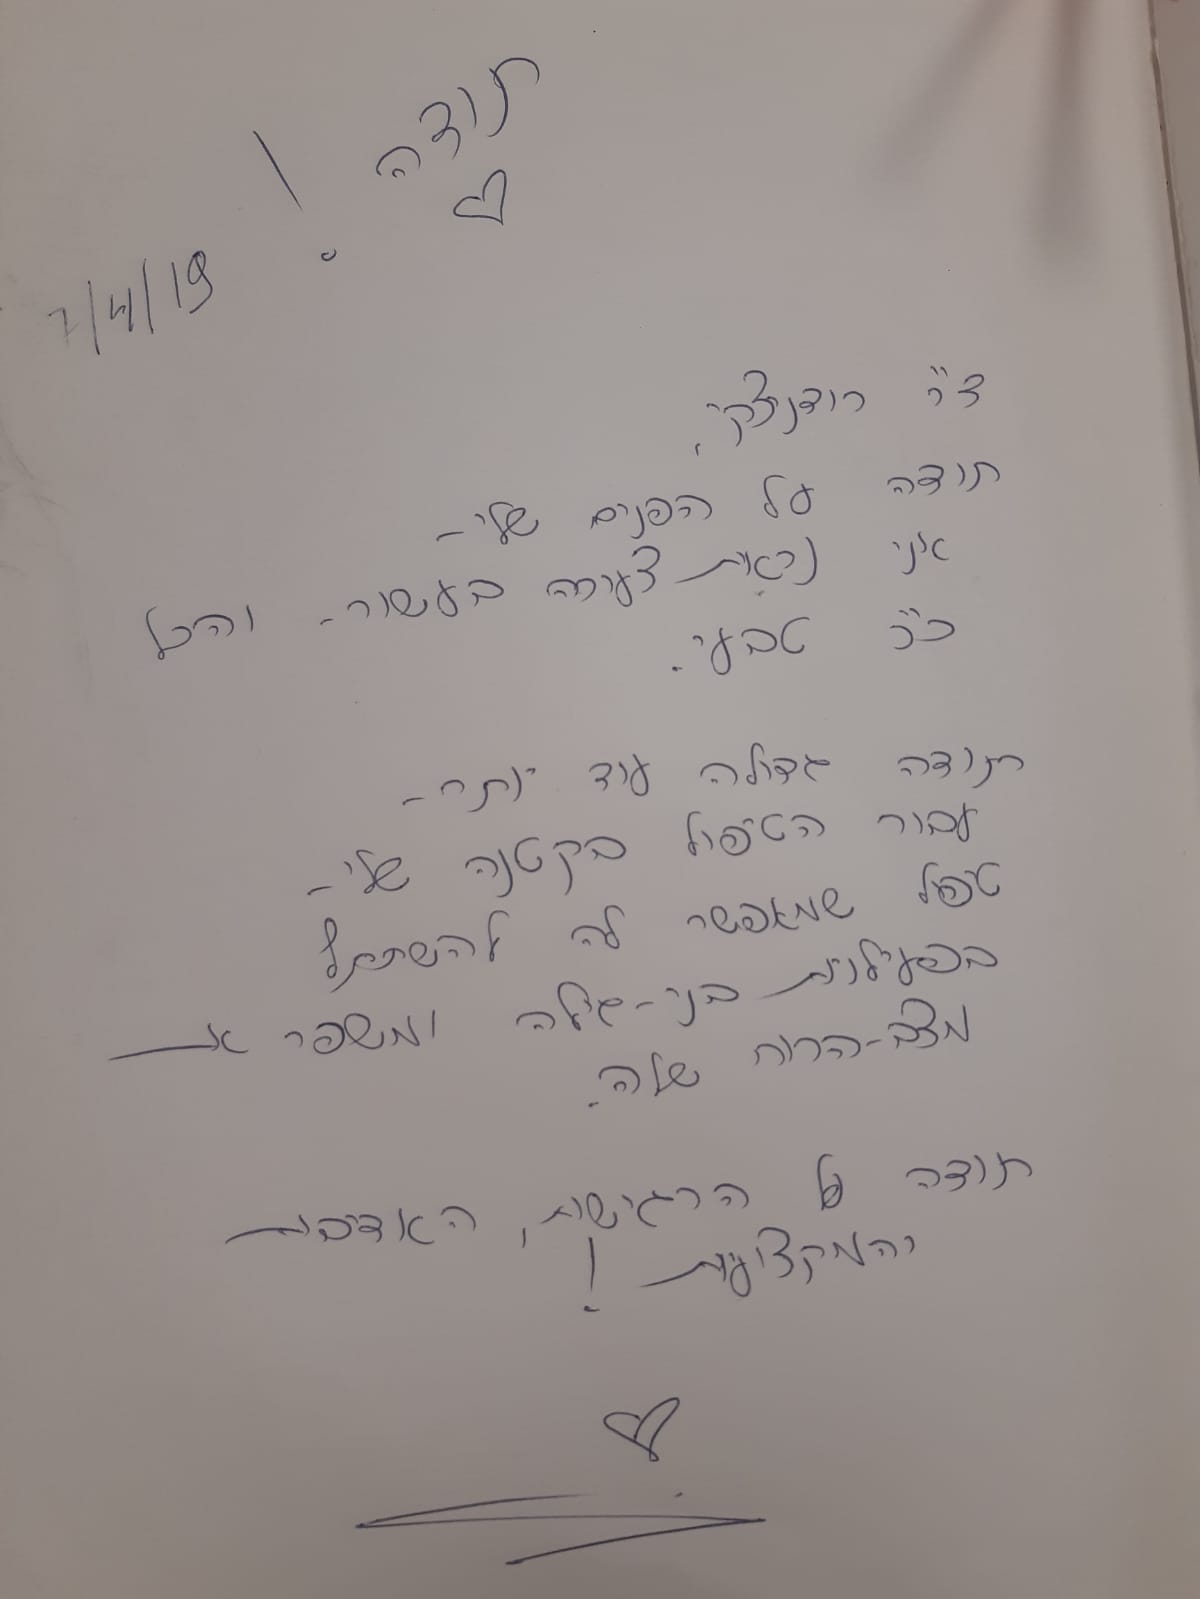 תודה !
7/4/19
ד"ר רודניצקי,
תודה על הפנים שלי -
אני נראית צעירה בעשור - והכל
כ"כ טבעי.
תודה גדולה עוד יותר -
עבור הטיפול בקטנה שלי -
טיפול שמאפשר לה להשתתף
בפעילויות בני-גילה ומשפר את
מצב-הרוח שלה.
תודה על הרגישות, האדיבות
והמקצועיות !